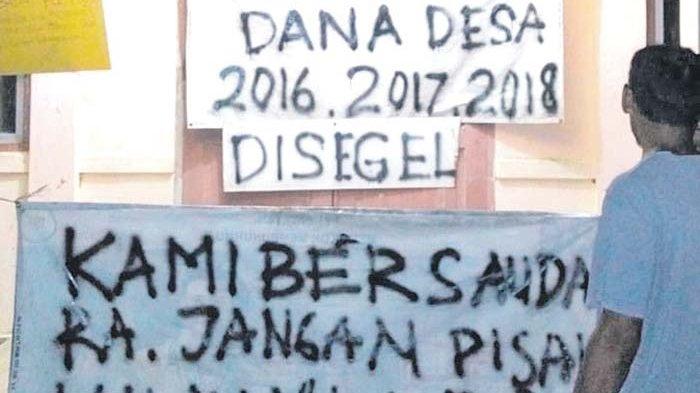 DANA DESA
2016.2017.2018
DISEGEL
KAMI BERSAUDA
RA. JANGAN PISA